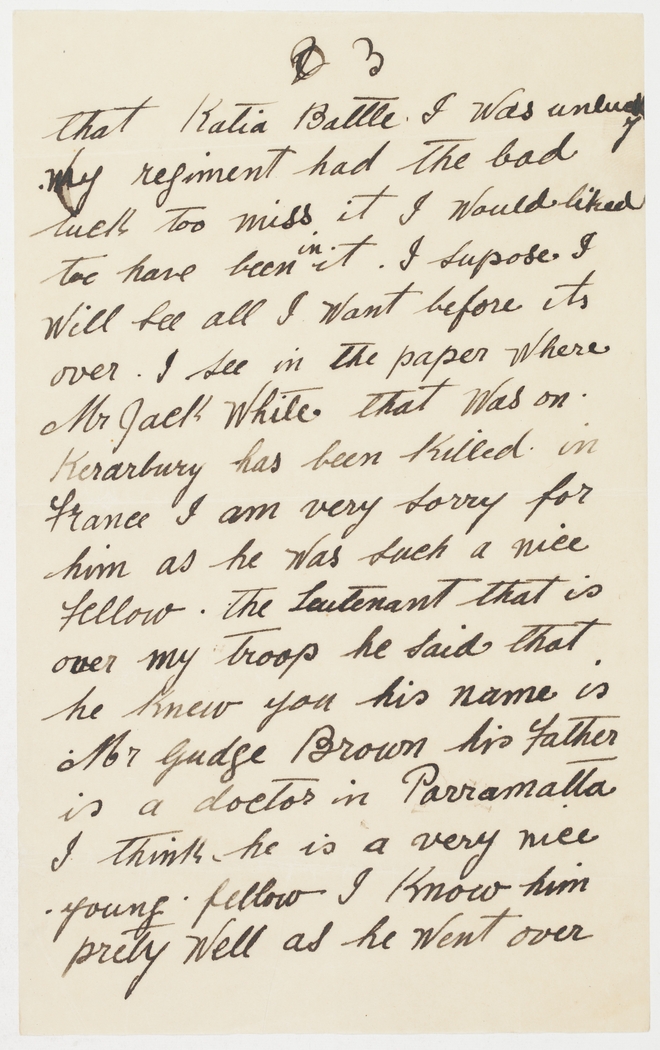 3
that Katia Battle. I was unlucky
My regiment had the bad
luck too miss it I would liked
too have been in it. I supose I
Will see all I Want before its
over. I see in the paper Where
Mr Jack White that Was on
Kerarbury has been Killed in
France I am very sorry for
him as he Was such a nice
fellow. the Leutenant that is
over my troop he said that
he knew you his name is
Mr Gudge Brown his Father
is a doctor in Parramatta
I think he is a very nice
young fellow I Know him
prety Well as he Went over